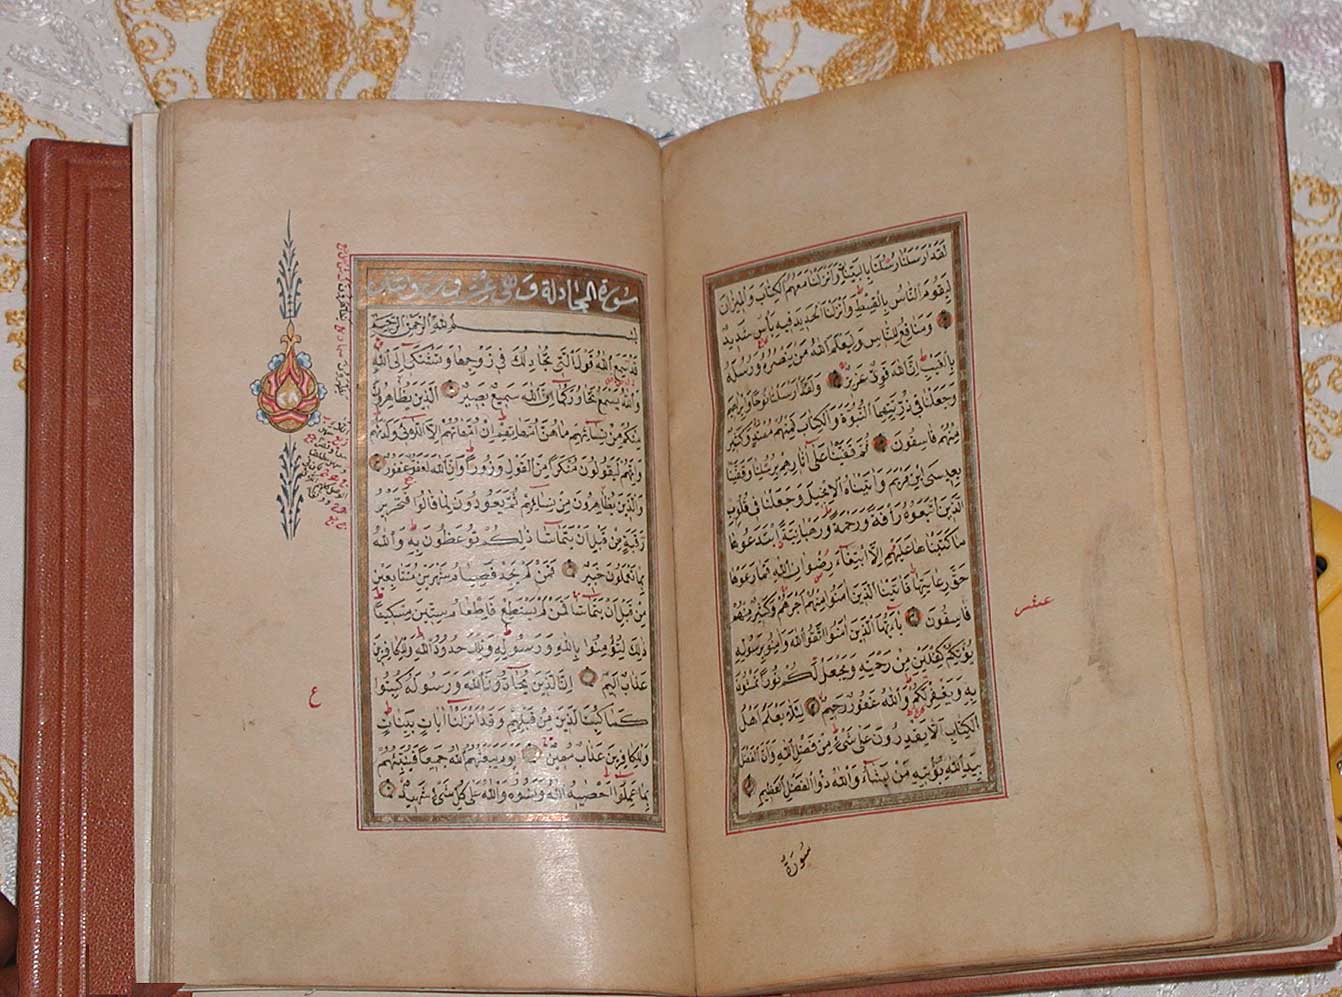 لَقَدْ اَرْسَلْنَا رُسُلَنَا بِالْبَيِّنَاتِ وَاَنْزَلْنَا مَعَهُمُ الْكِتَابَ وَالْمِيزَانَ
لِيَقُومَ النَّاسُ بِالْقِسْطِ وَاَنْزَلْنَا الْحَدِيدَ فِيهِ بَأْسٌ شَدِيدٌ
وَمَنَافِعُ لِلنَّاسِ وَلِيَعْلَمَ اللهُ مَنْ يَنْصُرُهُ وَرُسُلَهُ
بِالْغَيْبِ اِنَّ اللهَ قَوِىٌّ عَزِيزٌ وَلَقَدْ اَرْسَلْنَا نُوحًا وَاِبْرٰهِيمَ
وَجَعَلْنَا فِى ذُرِّيَّتِهِمَا النُّبُوَّةَ وَالْكِتَابَ فَمِنْهُمْ مُهْتَدٍ وَكَثِيرٌ
مِنْهُمْ فَاسِقُونَ ثُمَّ قَفَّيْنَا عَلٰى اٰثَارِهِمْ بِرُسُلِنَا وَقَفَّيْنَا
بِعِيسَى ابْنِ مَرْيَمَ وَاٰتَيْنَاهُ الْاِنْجِيلَ وَجَعَلْنَا فِى قُلُوبِ
الَّذِينَ اتَّبَعُوهُ رَأْفَةً وَرَحْمَةً وَرَهْبَانِيَّةً ابْتَدَعُوهَا
مَا كَتَبْنَاهَا عَلَيْهِمْ اِلَّا ابْتِغَاءَ رِضْوَانِ اللهِ فَمَا رَعَوْهَا
حَقَّ رِعَايَتِهَا فَاٰتَيْنَا الَّذِينَ اٰمَنُوا مِنْهُمْ اَجْرَهُمْ وَكَثِيرٌ مِنْهُمْ
فَاسِقُونَ يَاۤ اَيُّهَا الَّذِينَ اٰمَنُوا اتَّقُوا اللهَ وَاٰمِنُوا بِرَسُولِهِ
يُؤْتِكُمْ كِفْلَيْنِ مِنْ رَحْمَتِهِ وَيَجْعَلْ لَكُمْ نُورًا تَمْشُونَ
بِهِ وَيَغْفِرْ لَكُمْ وَاللهُ غَفُورٌ رَحِيمٌ لِئَلَّا يَعْلَمَ اَهْلُ
الْكِتَابِ اَلَّا يَقْدِرُونَ عَلٰى شَىْءٍ مِنْ فَضْلِ اللهِ وَاَنَّ الْفَضْلَ
بِيَدِ اللهِ يُؤْتِيهِ مَنْ يَشَاءُ وَاللهُ ذُو الْفَضْلِ الْعَظِيمِ
عشر
سُورَةُ
سُورَةُ الْمُجَادَلَةِ وَهِىَ
بِسْمِ اللهِ الرَّحْمٰنِ الرَّحِيمِ
قَدْ سَمِعَ اللهُ قَوْلَ الَّتِى تُجَادِلُكَ فِى زَوْجِهَا وَتَشْتَكِى اِلَى اللهِ
وَاللهُ يَسْمَعُ تَحَاوُرَكُمَا اِنَّ اللهَ سَمِيعٌ بَصِيرٌ اَلَّذِينَ يُظَاهِرُونَ
مِنْكُمْ مِنْ نِسَائِهِمْ مَا هُنَّ اُمَّهَاتِهِمْ اِنْ اُمَّهَاتُهُمْ اِلَّا اللَّائِى وَلَدْنَهُمْ
وَاِنَّهُمْ لَيَقُولُونَ مُنْكَرًا مِنَ الْقَوْلِ وَزُورًا وَاِنَّ اللهَ لَعَفُوٌّ غَفُورٌ
وَالَّذِينَ يُظَاهِرُونَ مِنْ نِسَائِهِمْ ثُمَّ يَعُودُونَ لِمَا قَالُوا فَتَحْرِيرُ
رَقَبَةٍ مِنْ قَبْلِ اَنْ يَتَمَاسَّا ذٰلِكُمْ تُوعَظُونَ بِهِ وَاللهُ
بِمَا تَعْمَلُونَ خَبِيرٌ فَمَنْ لَمْ يَجِدْ فَصِيَامُ شَهْرَيْنِ مُتَتَابِعَيْنِ
مِنْ قَبْلِ اَنْ يَتَمَاسَّا فَمَنْ لَمْ يَسْتَطِعْ فَاِطْعَامُ سِتِّينَ مِسْكِينًا
ذٰلِكَ لِتُؤْمِنُوا بِاللهِ وَرَسُولِهِ وَتِلْكَ حُدُودُ اللهِ وَلِلْكَافِرِينَ
عَذَابٌ اَلِيمٌ اِنَّ الَّذِينَ يُحَادُّونَ اللهَ وَرَسُولَهُ كُبِتُوا
كَمَا كُبِتَ الَّذِينَ مِنْ قَبْلِهِمْ وَقَدْ اَنْزَلْنَا اٰيَاتٍ بَيِّنَاتٍ
وَلِلْكَافِرِينَ عَذَابٌ مُهِينٌ يَوْمَ يَبْعَثُهُمُ اللهُ جَمِيعًا فَيُنَبِّئُهُمْ
بِمَا عَمِلُوا اَحْصٰيهُ اللهُ وَنَسُوهُ وَاللهُ عَلٰى كُلِّ شَىْءٍ شَهِيدٌ
ع